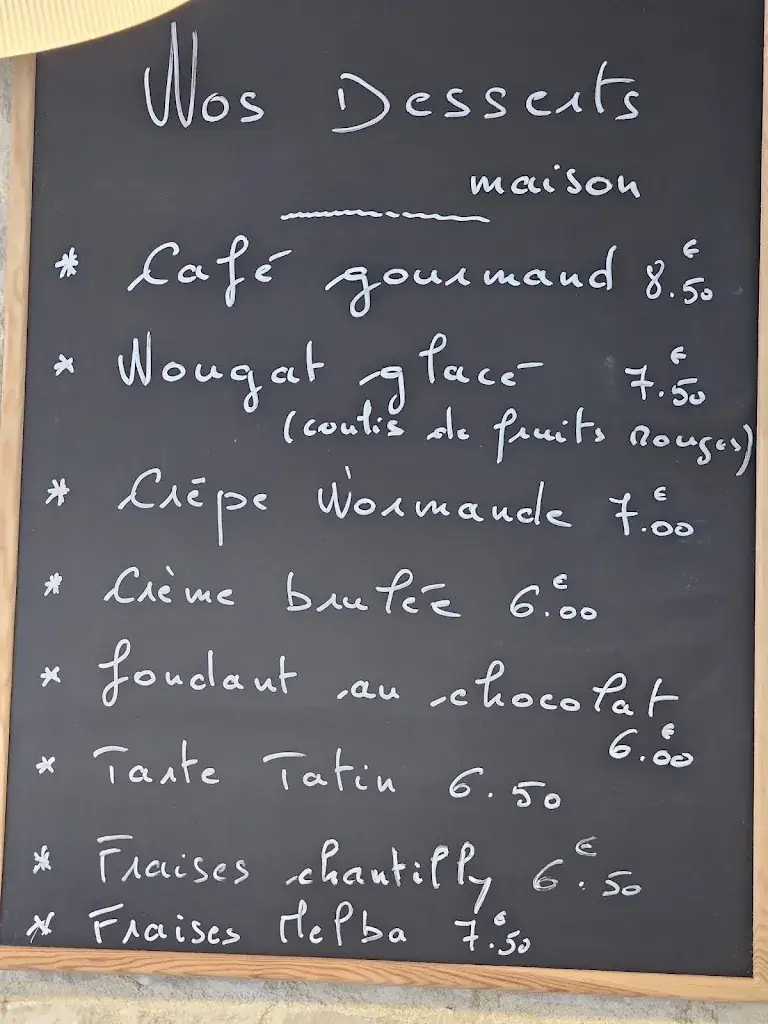 Nos Desserts
maison
* Café gourmand 8.50 €
* Nougat glacé 7.50 €
(coulis de fruits rouges)
* Crêpe Normande 7.00 €
* Crème brulée 6.00 €
* fondant au chocolat
6.00 €
* Tarte Tatin 6.50
* Fraises chantilly 6.50 €
* Fraises Melba 7.50 €